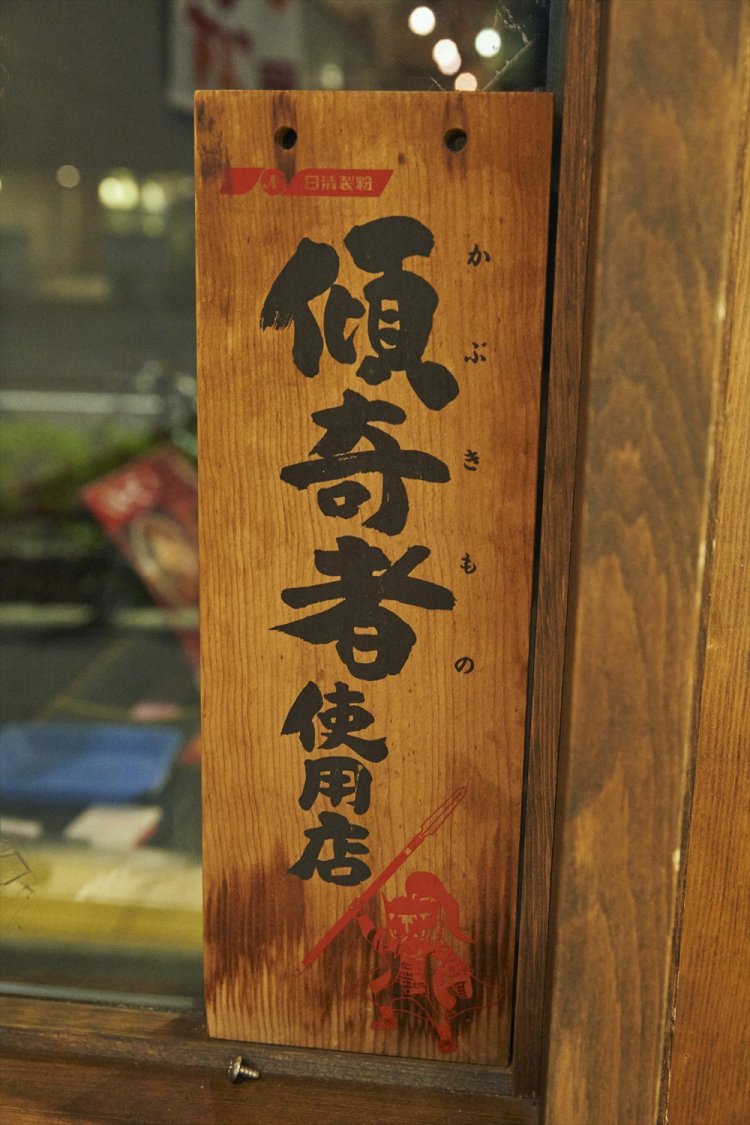 日清製粉
傾奇者使用店
かぶきもの